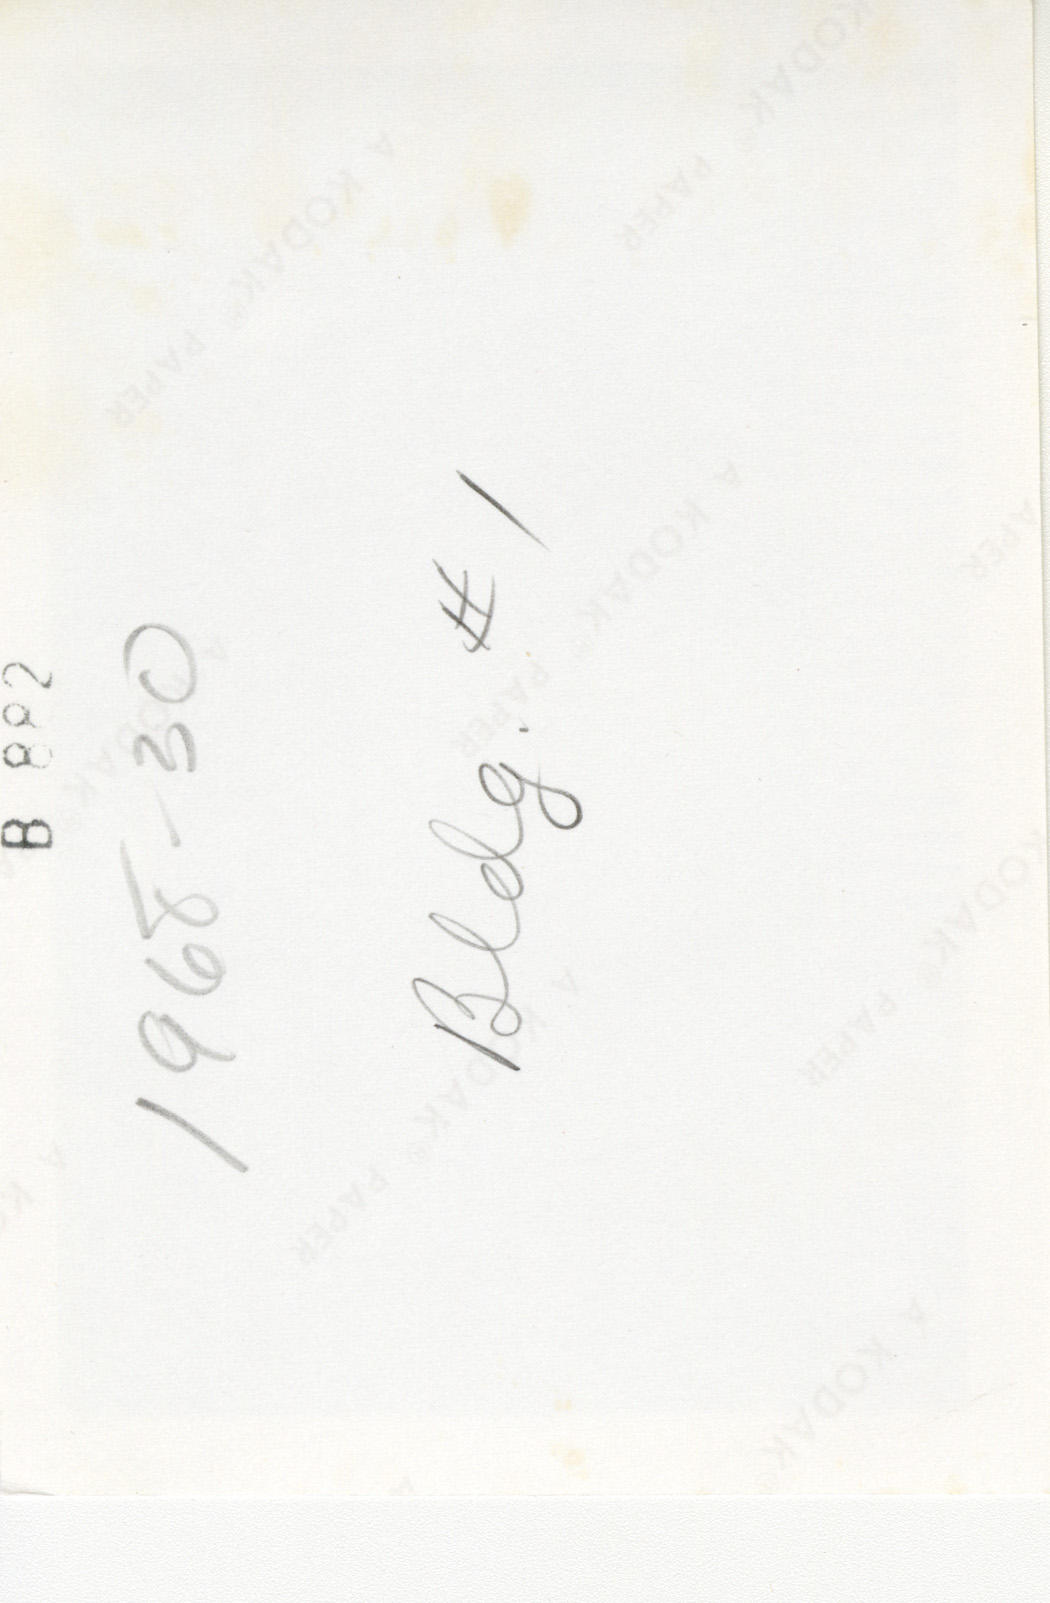 B 882
1968-30
Bldg. # 1
A KODAK® PAPER
A KODAK® PAPER
A KODAK® PAPER
A KODAK® PAPER
A KODAK® PAPER
A KODAK® PAPER
A KODAK®